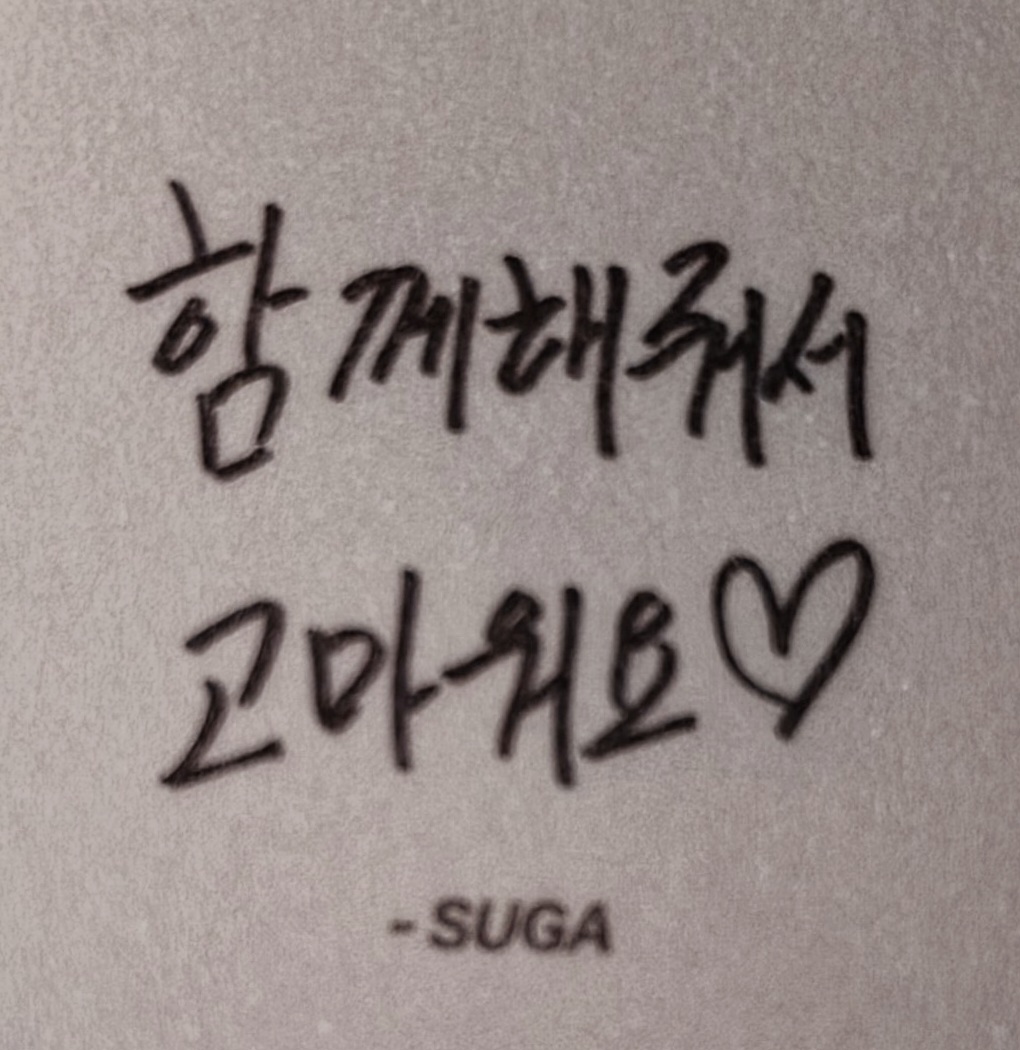 함께해줘서
고마워요♡
- SUGA